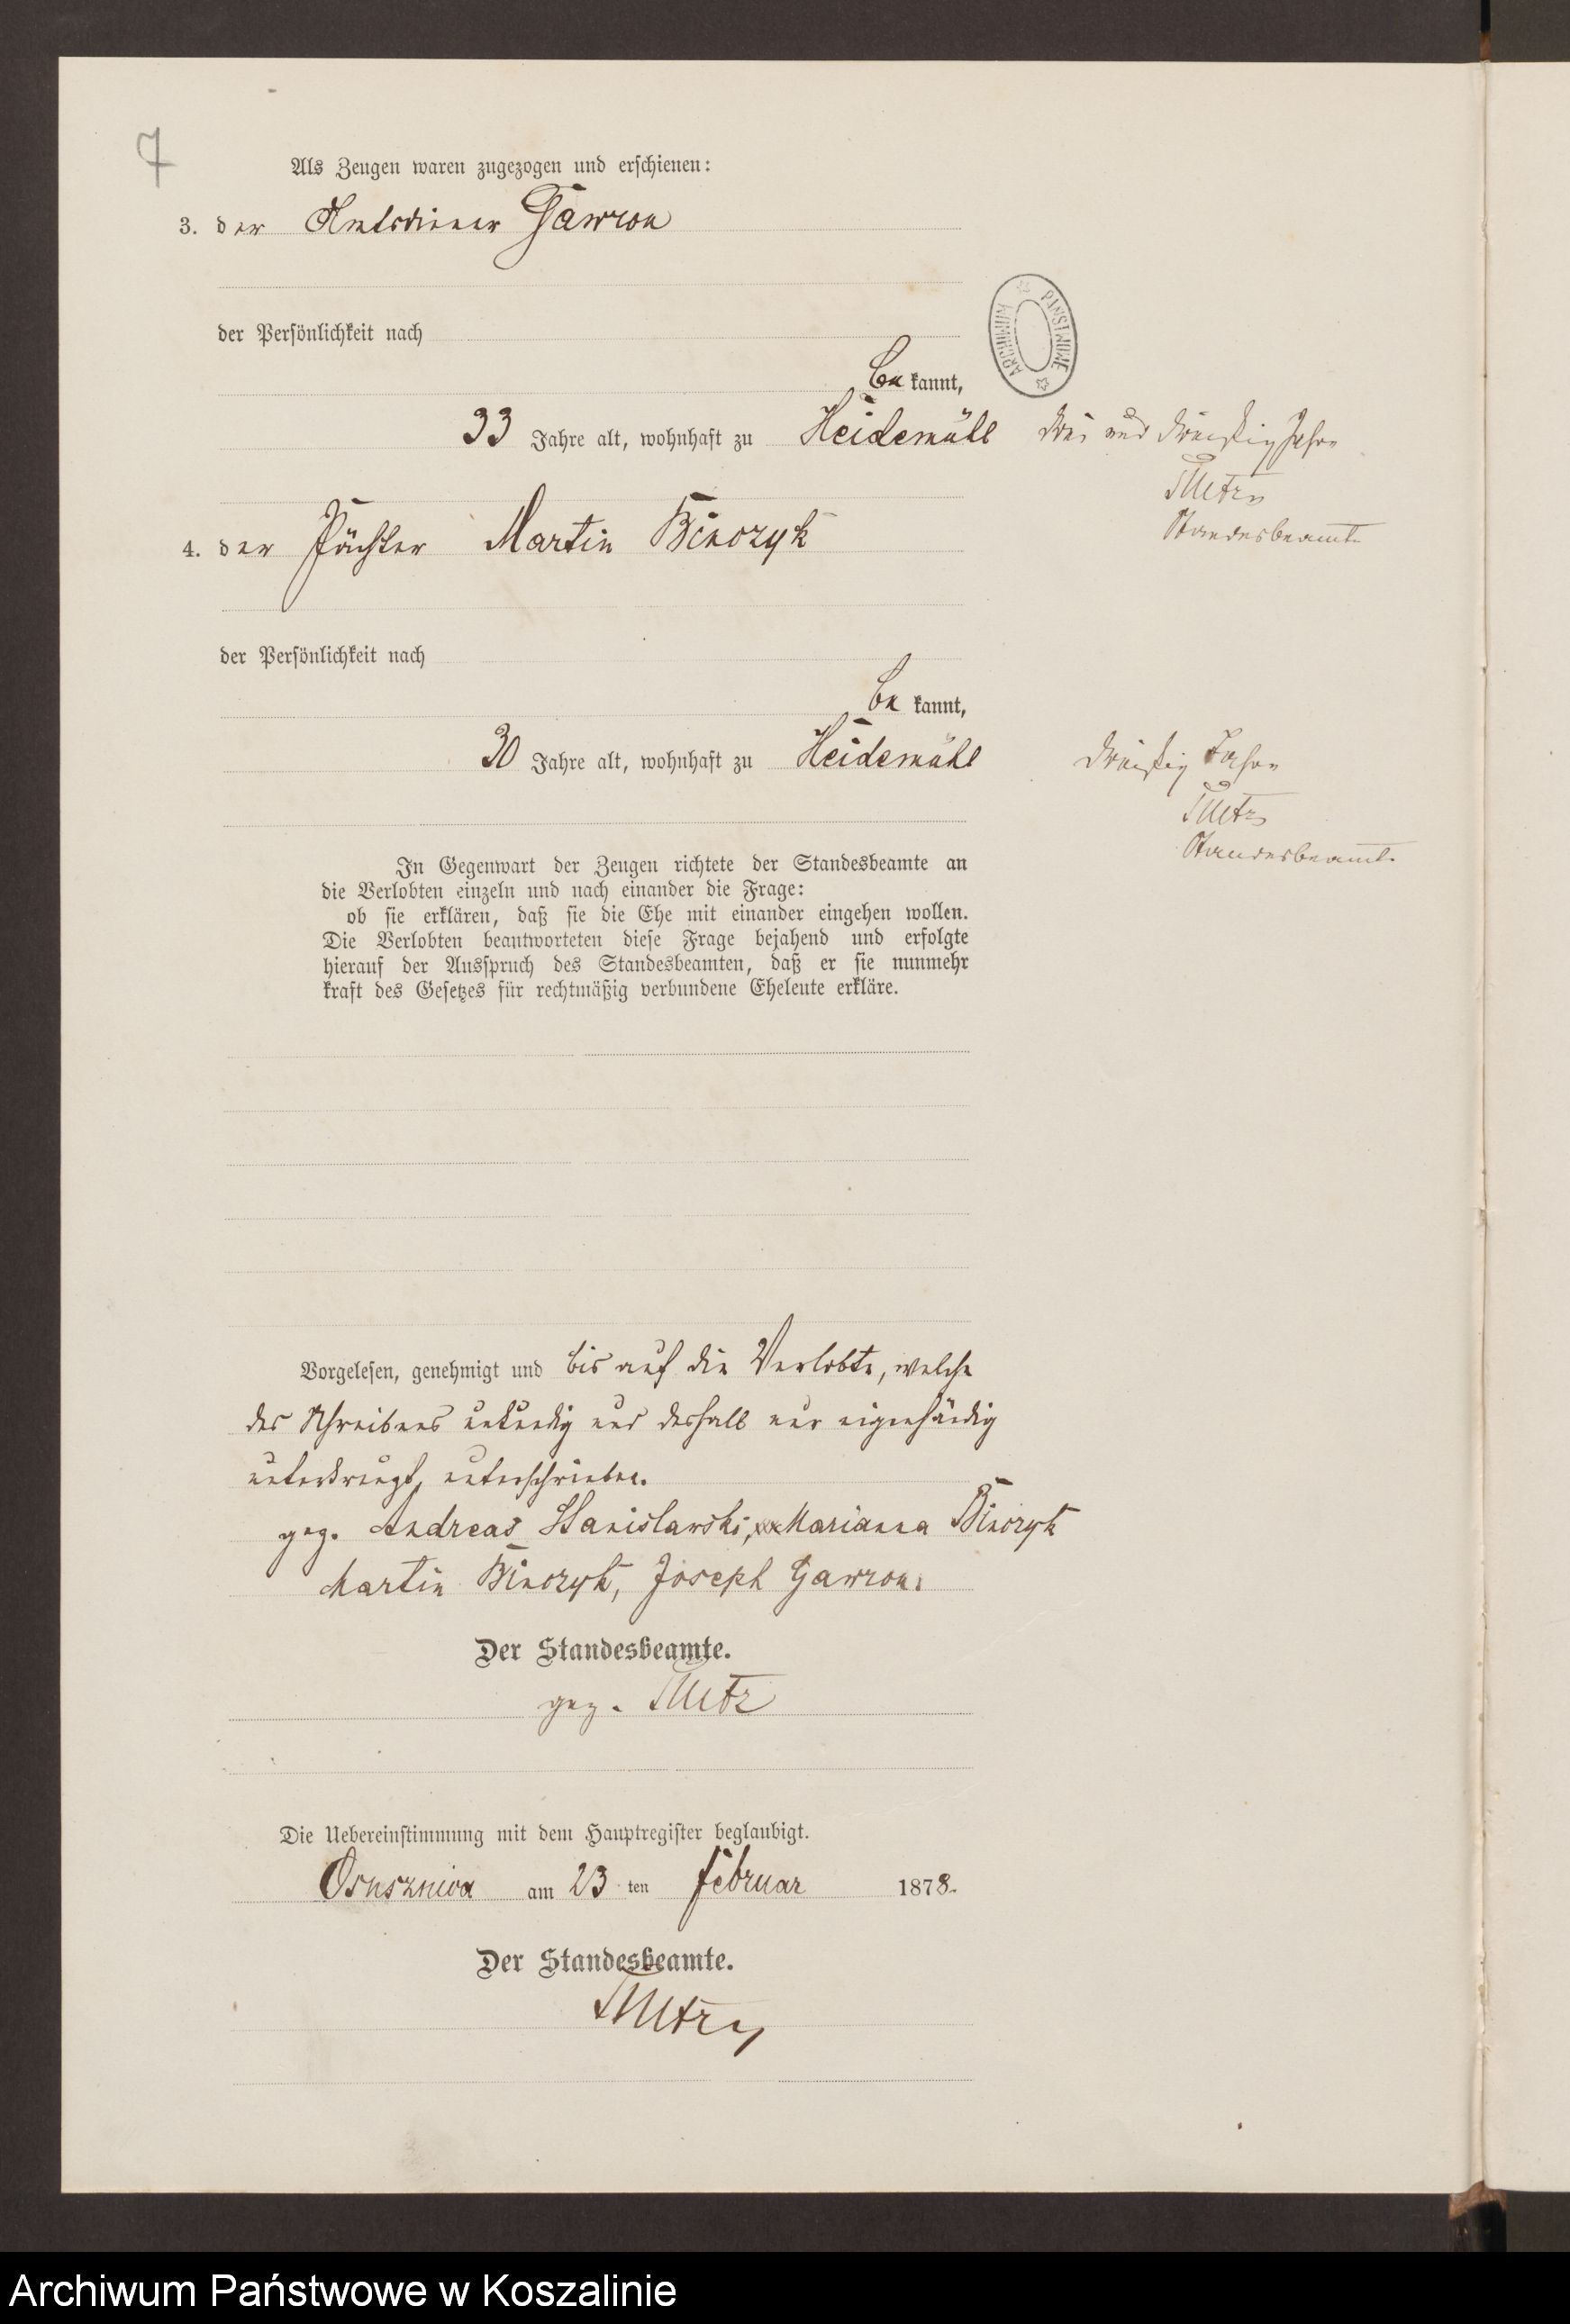 7
Als Zeugen waren zugezogen und erschienen:
3. der Amtsdiener Gawron
ARCHIWUM PAŃSTWOWE
der Persönlichkeit nach
be kannt,
33 Jahre alt, wohnhaft zu Heidemühl drei und dreißig Jahre
Metz
Standesbeamte
4. der Pächter Martin Binczyk
der Persönlichkeit nach
be kannt,
30 Jahre alt, wohnhaft zu Heidemühl dreißig Jahre
Metz
Standesbeamte
In Gegenwart der Zeugen richtete der Standesbeamte an
die Verlobten einzeln und nach einander die Frage:
ob sie erklären, daß sie die Ehe mit einander eingehen wollen.
Die Verlobten beantworteten diese Frage bejahend und erfolgte
hierauf der Ausspruch des Standesbeamten, daß er sie nunmehr
kraft des Gesetzes für rechtmäßig verbundene Eheleute erkläre.
Vorgelesen, genehmigt und bis auf die Verlobte, welche
des Schreibens unkundig und deshalb nur eigenhändig
unterkreuzt, unterschrieben.
gez. Andreas Stanislawski, xxx Marianna Binczyk
Martin Binczyk, Joseph Gawron.
Der Standesbeamte.
gez. Metz
Die Uebereinstimmung mit dem Hauptregister beglaubigt.
Osuszniça am 23 ten Februar 1878.
Der Standesbeamte.
Metz
Archiwum Państwowe w Koszalinie